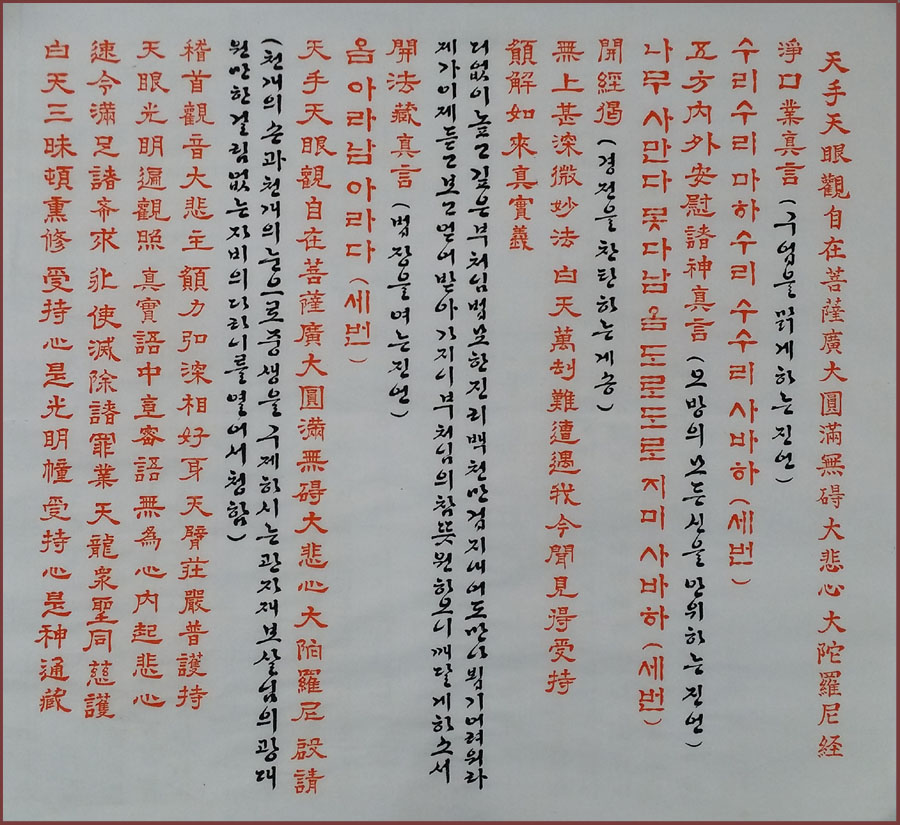 天手天眼觀自在菩薩廣大圓滿無碍大悲心 大陀羅尼経
淨口業真言 (구업을 맑게하는진언)
수리수리 마하수리 수수리 사바하 (세번)
五方内外安慰諸神真言 (오방의 모든신을 안위하는진언)
나무 사만다 못다남 옴 도로도로 지미 사바하 (세번)
開經偈 (경전을 찬탄하는게송)
無上甚深微妙法 白天萬刧難遭遇我今聞見得受持
願解如來真實義
더없이높고깊은부처님법묘한진리백천만겁지내어도만나뵙기어려워라
제가이제듣고보고얻어받아가지니부처님의참뜻원하오니깨닫게하소서
開法藏真言 (법장을여는진언)
옴 아라남아라다 (세번)
天手天眼觀自在菩薩廣大圓滿無碍大悲心大陀羅尼 啟請
(천개의손과천개의눈으로중생을구제하시는관자재보살님의광대
원만한걸림없는자비의다라니를열어서청함)
稽首觀音大悲主 願力弘深相好身 天臂莊嚴普護持
天眼光明遍觀照 真實語中宣密語 無為心内起悲心
速令滿足諸希求 永使滅除諸罪業 天龍衆聖同慈護
白天三昧頓熏修 受持心是光明幢 受持心是神通藏